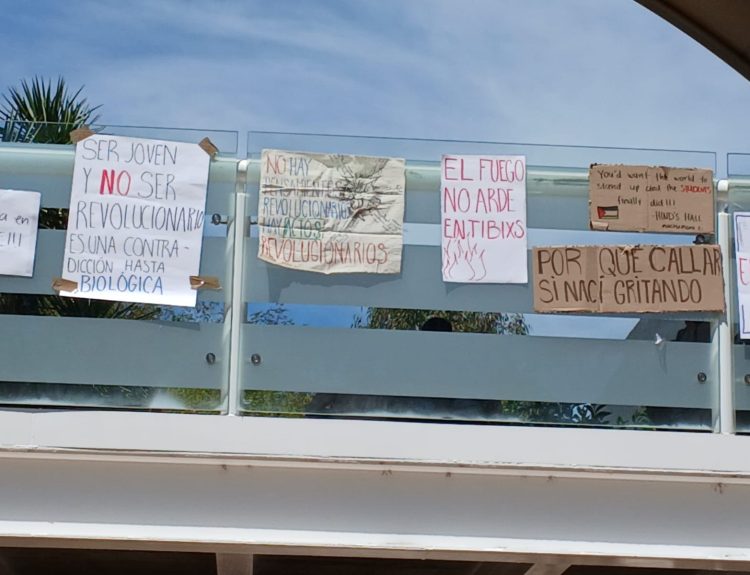 a en
!!!
SER JOVEN
Y NO SER
REVOLUCIONARIO
ES UNA CONTRA-
DICCIÓN HASTA
BIOLÓGICA
NO HAY
PENSAMIENTOS
REVOLUCIONARIOS
HAY ACTOS
REVOLUCIONARIOS
EL FUEGO
NO ARDE
EN TIBIXS
You'd want the world to
stand up and the STUDENTS
finally did!!!
- HIND'S HALL
MACKLEMORE
POR QUÉ CALLAR
SI NACÍ GRITANDO
E
L